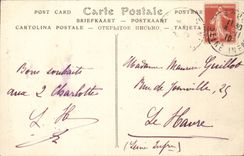 POST CARD Carte Postale POSTKARTE
BRIEFKAART POSTKAART
CARTOLINA POSTALE ОТКРЫТОЕ ПИСЬМО
Bons souhaits
aux 2 Charlotte
Madame Maurice Guillot
Rue de Joinville, 25
Le Havre
(Seine Infre)